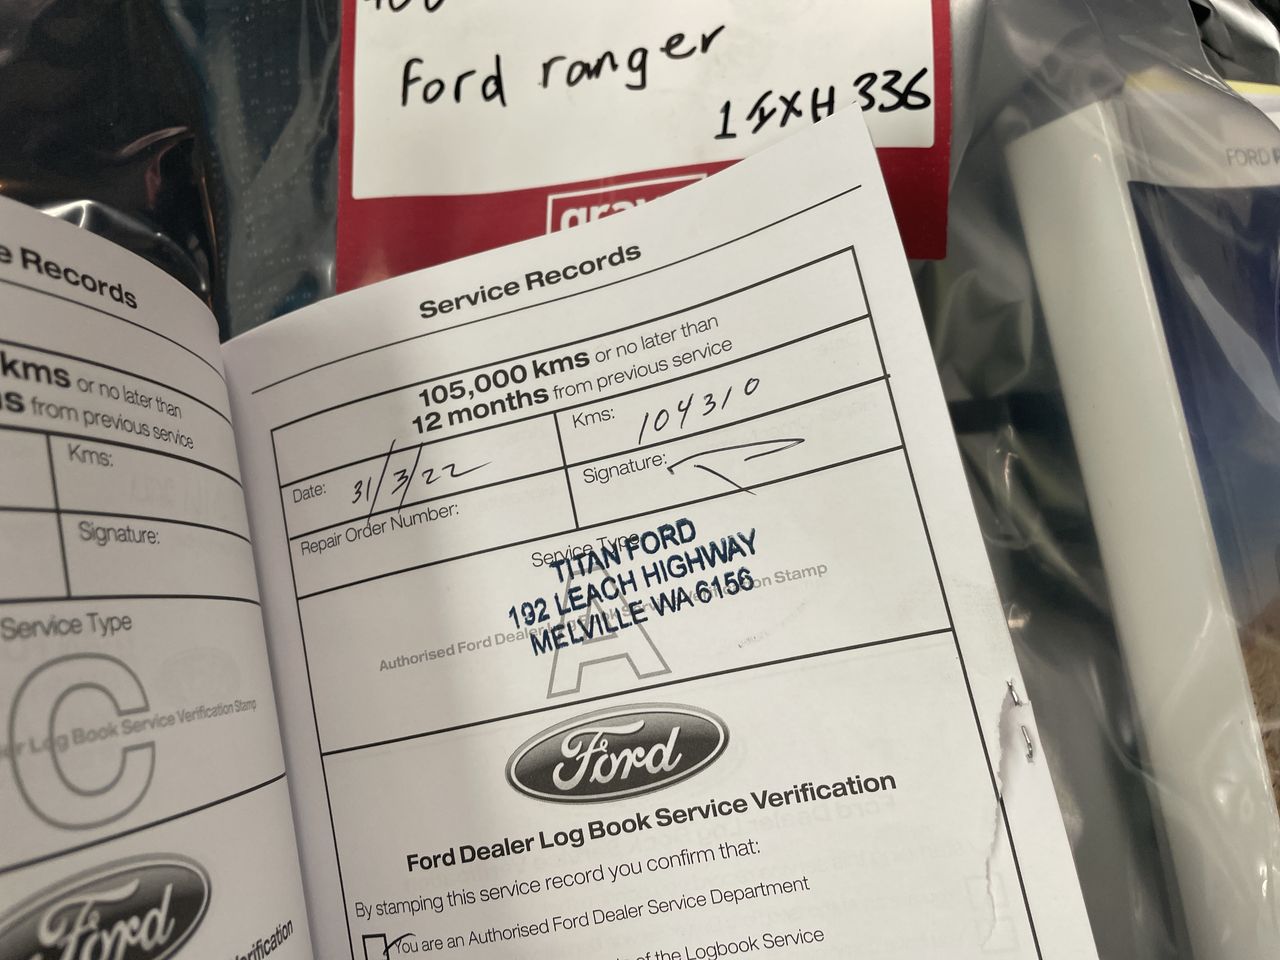 Ford ranger
336
Service Records
105,000 kms or no later than
12 months from previous service
Date: 31/3/22
Kms: 104310
Repair Order Number:
Signature:
Service Type
A
TITAN FORD
192 LEACH HIGHWAY
MELVILLE WA 6156
Authorised Ford Dealer Log Book Service Verification Stamp
Ford
Ford Dealer Log Book Service Verification
By stamping this service record you confirm that:
You are an Authorised Ford Dealer Service Department
of the Logbook Service
Records
kms or no later than
from previous service
Kms:
Signature:
Service Type
C
Log Book Service Verification Stamp
Ford
FORD